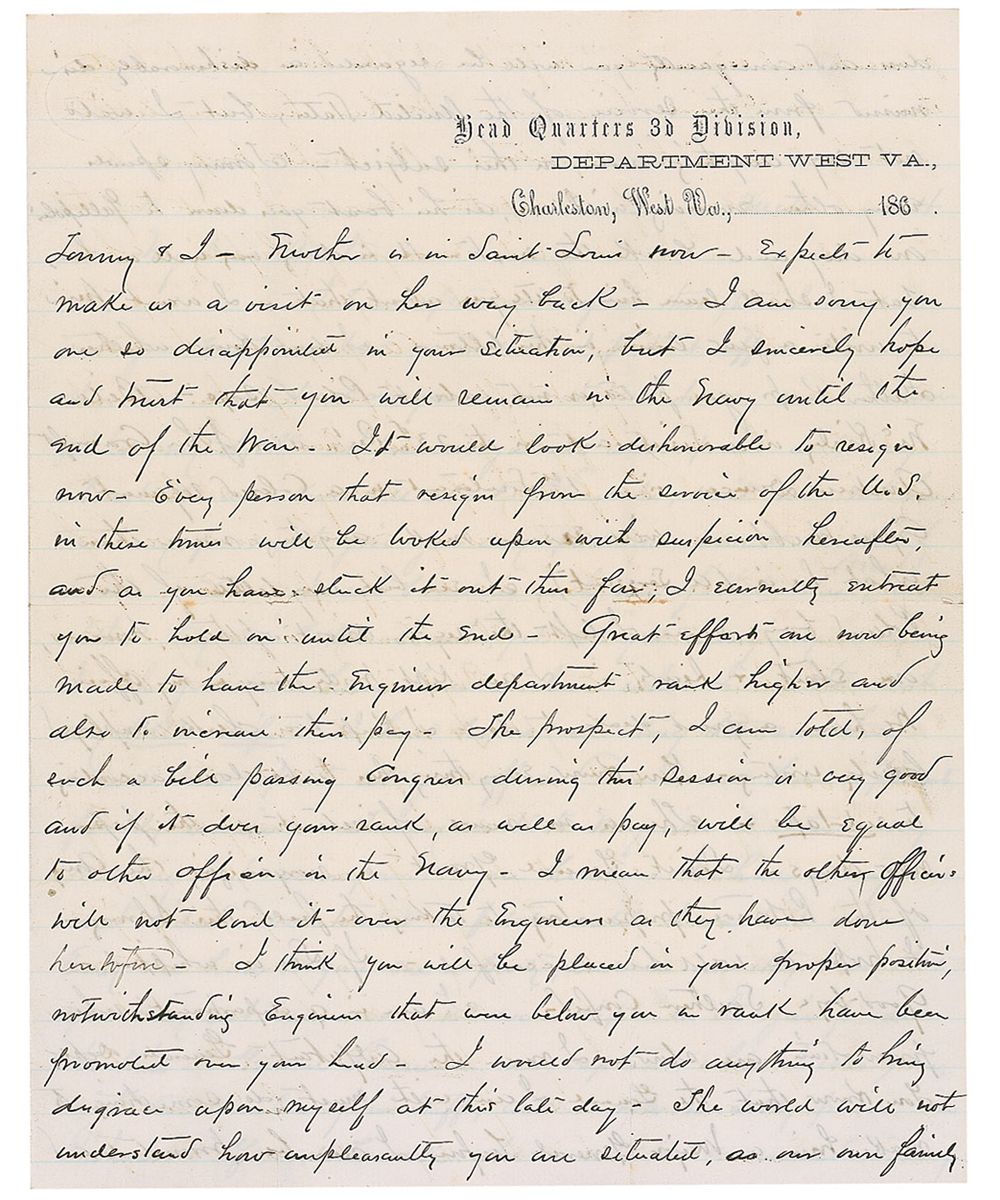 Head Quarters 3d Division,
DEPARTMENT WEST VA.,
Charleston, West Va., 186 .
& I – Mother is in Saint Louis now – Expects to
make us a visit on her way back – I am sorry you
are so disappointed in your situation, but I sincerely hope
and trust that you will remain in the Navy until the
end of the War – It would look dishonorable to resign
now – Every person that resigns from the service of the U.S.
in these times will be looked upon with suspicion hereafter,
and as you have stuck it out thus far, I earnestly entreat
you to hold on until the end – Great efforts are now being
made to have the Engineer department rank higher and
also to increase their pay – The prospect, I am told, of
such a bill passing Congress during this session is very good
and if it does your rank, as well as pay, will be equal
to other officers in the Navy – I mean that the other officers
will not lord it over the Engineers as they have done
heretofore – I think you will be placed in your proper position,
notwithstanding Engineers that were below you in rank have been
promoted over your head – I would not do anything to bring
disgrace upon myself at this late day – The world will not
understand how unpleasantly you are situated, as our own family